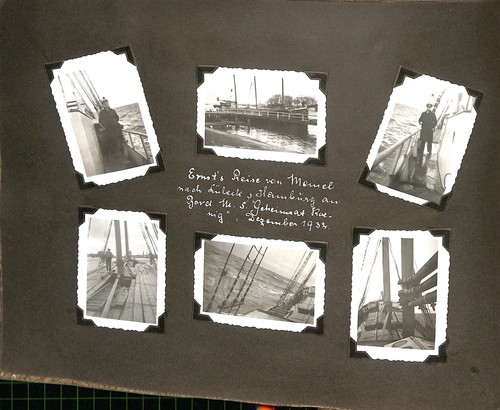 Ernst's Reise von Memel
nach Lübeck, Hamburg an
Bord M. S. "Geheimrat Koe-
nig", Dezember 193